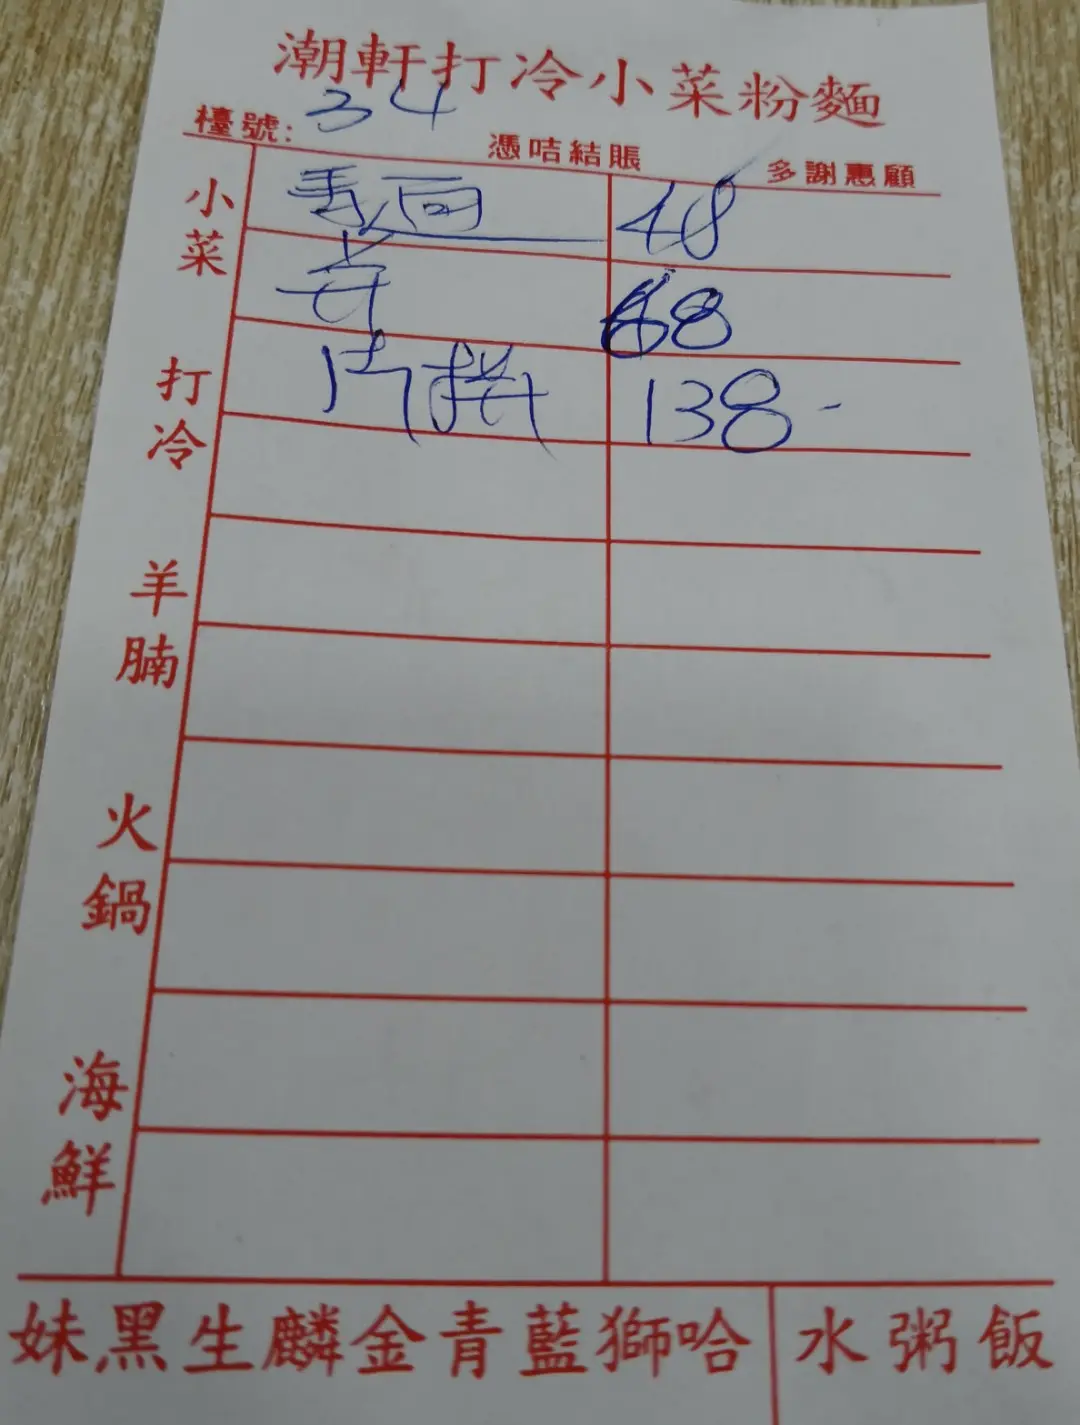 潮軒打冷小菜粉麵
檯號: 34
憑咭結賬
多謝惠顧
小菜
48
68
打冷
138-
羊腩
火鍋
海鮮
妹黑生麟金青藍獅哈
水粥飯